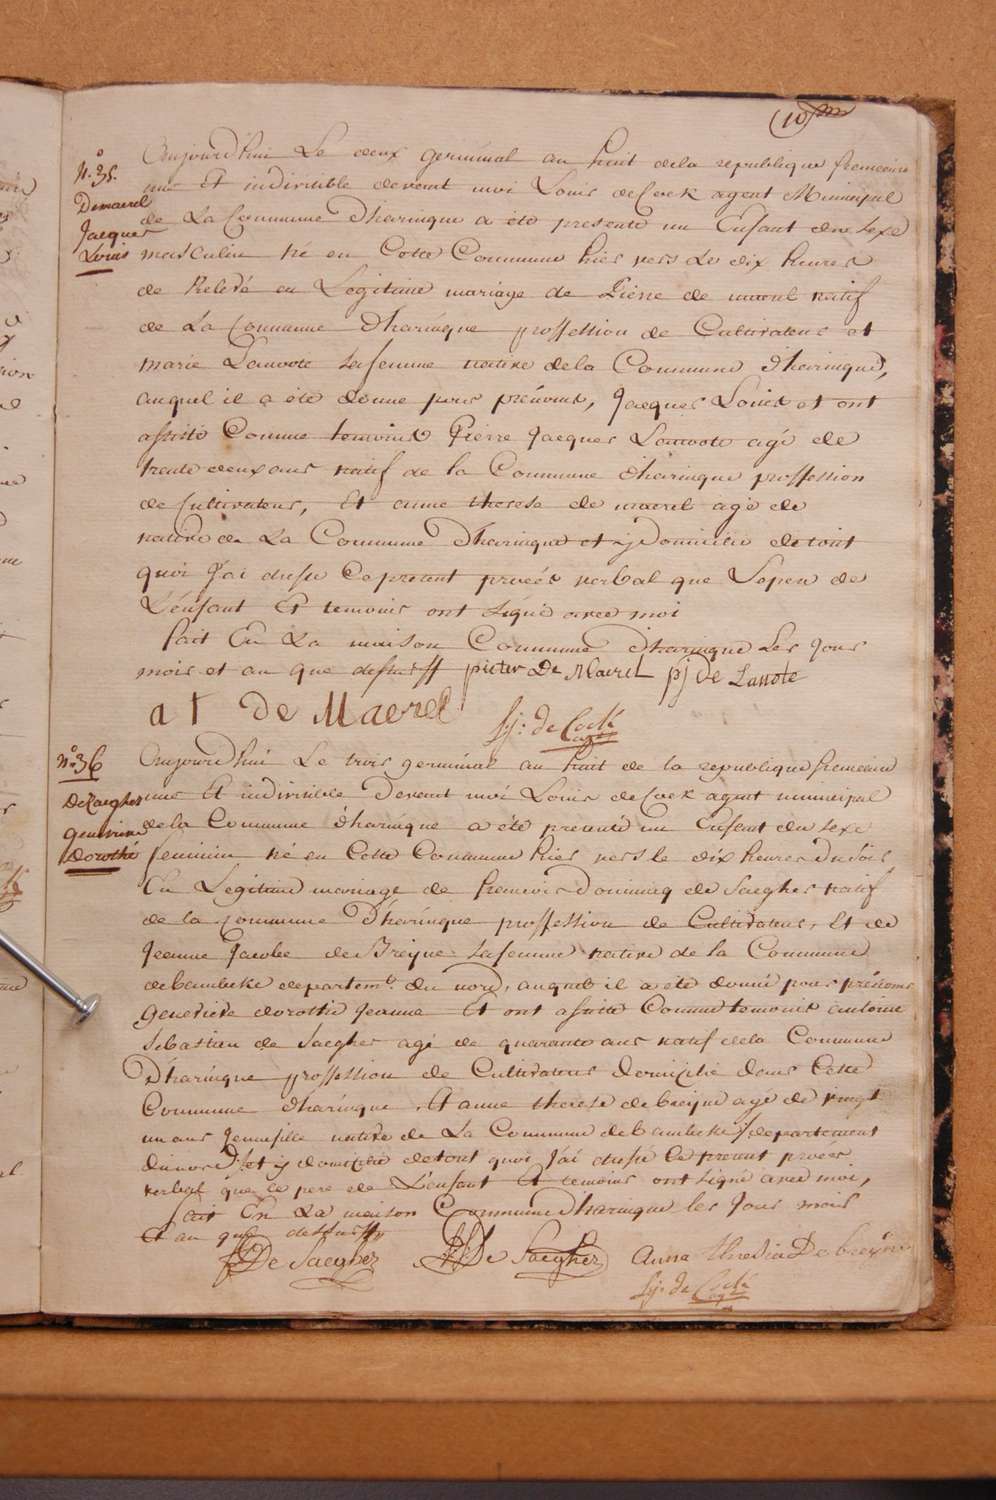 10
N.° 35.
Demaerel
Jacques
Louis
Aujourd'hui Le deux germinal an huit de la republique francaise
une Et indivisible devant moi Louis deCock agent Municipal
de La Commune d'haringue a été presenté un Enfant du sexe
masculin né en Cette Commune hier vers Le dix heures
de Relevé en Legitime mariage de Pierre de maerel natif
de La Commune d'haringue proffession de Cultivateur et
marie Lanote safemme native dela Commune d'haringue,
auquel il a été donné pour prénoms, Jacques Louis et ont
assisté Comme temoins Pierre Jacques Lanote agé de
trente deux ans natif de la Commune d'haringue proffession
de Cultivateur, Et anne therese de maerel agé de
native de La Commune d'haringue et y Domicilié de tout
quoi J'ai dressé Ce present procès verbal que Le pere de
L'énfant Et temoins ont signé avec moi
fait En La maison Commune d'haringue Les Jour
mois et an que dessus pieter De Maerel pj de Lanote
a t de Maerel
Lj: de Cock
agent
N.° 36
DeSaegher
genevieve
dorothé
Aujourd'hui Le trois germinal an huit de la republique francaise
une Et indivisible Devant moi Louis deCock agent municipal
de la Commune d'haringue a été presenté un Enfant du sexe
feminin né en Cette Commune hier vers le dix heures Du soir
En Legitime mariage de francois Dominiq de Saegher natif
de la Commune D'haringue proffession de Cultivateur, Et de
Jeanne Jacobe de Breyne safemme native de la Commune
debambeke departemt. du nord, auquel il a été donné pour prénoms
genevieve dorothé Jeanne Et ont assisté Comme temoins antoine
Sebastien de Saegher agé de quarante ans natif dela Commune
D'haringue proffession de Cultivateur domicilié dans Cette
Commune d'haringue, Et anne therese debreyne age de vingt
un ans Jeunefille native de La Commune debambeke departement
du nord et y domicilié detout quoi J'ai dressé Ce present procès
verbal que le pere de L'énfant Et temoins ont signé avec moi,
fait En La maison Commune D'haringue les Jour mois
Et an que dessus
De Saegher De Saegher Anna Theresia De breyne
Lj: de Cock
agent